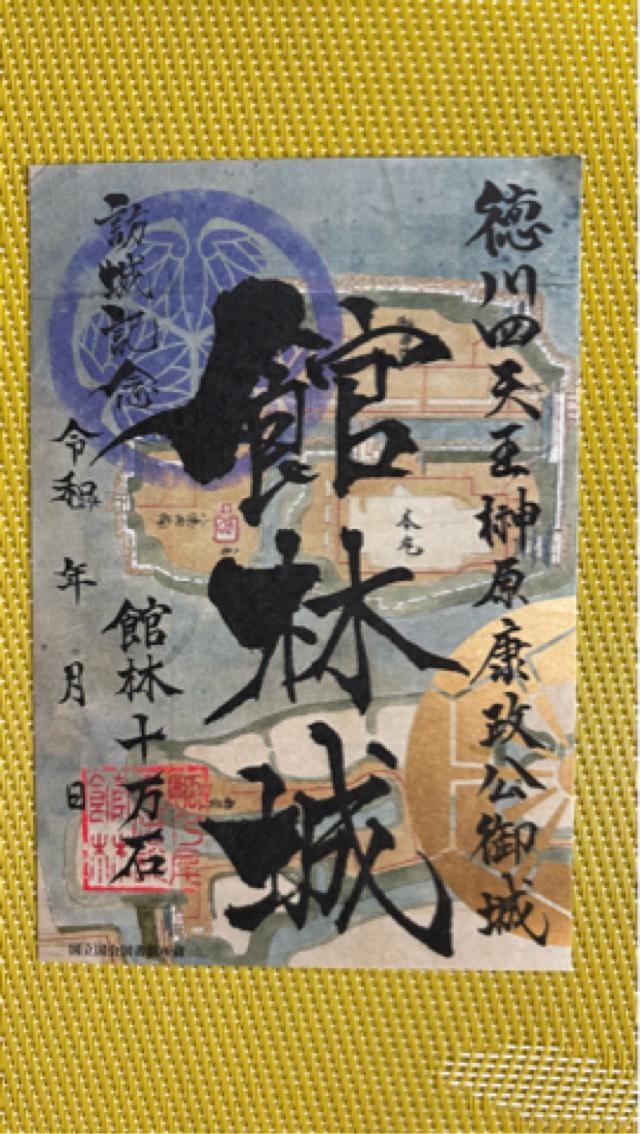 徳川四天王榊原康政公御城
館林城
訪城記念
令和 年 月 日
館林十万石
本丸
国立国会図書館所蔵